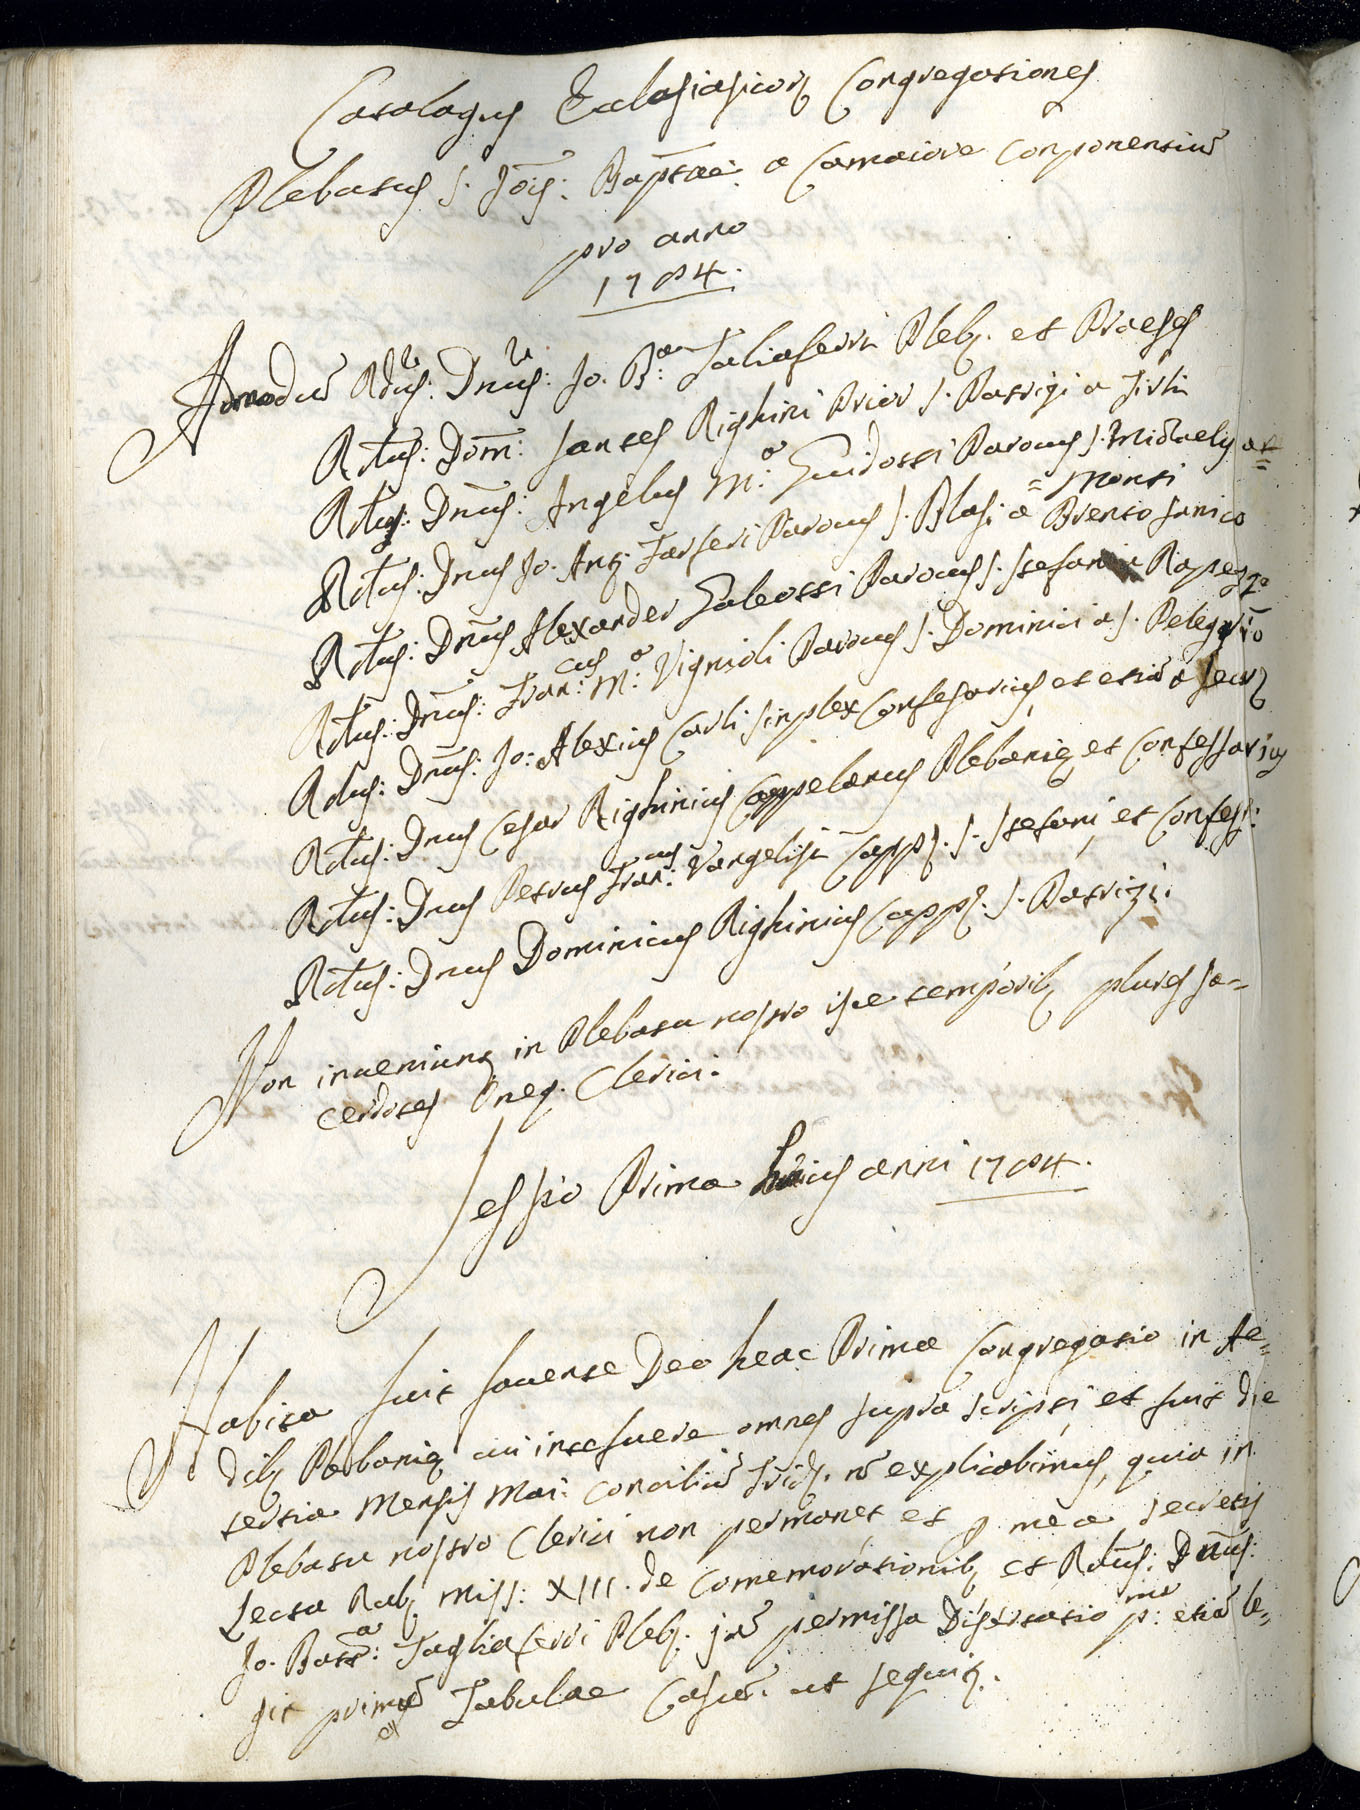 Catalogus Ecclesiasticor. Congregationes
Plebatus S. Jois: Baptae a Camaiore Componentium
pro anno
1704.
Admodum Rdus: Dnus: Jo. Bta: Taliaferri Pleb. et Praeses
Rdus: Dom: Santes Righini Prior S. Patrizi a
Rdus: Dnus: Angelus M.a Guidossi Parocus S. Michaelis at
= Monti
Rdus: Dnus Jo. Ant. Tarseri Parocus S. Blasi a
Rdus: Dnus Alexander Galeossi Parocus S. Stefani a
Rdus: Dnus: Fran:cus M:a Vignioli Parocus S. Dominici a S. Pelegrio
Rdus: Dnus: Jo: Alexius Carli simplex Confesarius, et etiã a Secr.
Rdus: Dnus Cesar Righinius Cappelanus Plebaniae, et Confessarius
Rdus: Dnus Petrus Fran:cus Vangelisti Capp. S. Stefani, et Confess:
Rdus: Dnus Dominicus Righinius Capp. S. Patrizi.
Non inveniunt. in Plebatu nostro iste temporib. plures Sa-
cerdotes neq. Clerici.
Sessio Prima huius anni 1704.
Habita fuit favente Deo heac Prima Congregatio in Ae-
dib. Plebaniae cui intefuere omnes supra scripti, et fuit die
tertia Mensis Mai: Concilium Trid. nõ explicabimus, quia in
Plebatu nostro Clerici non permanet et p. me a secretis
Lecta Rub. Miss: XIII. de Comemorationib. et Rdus: Dnus:
Jo. Batta: Tagliaferri Pleb. permissa Disertatio p:me etiã le-
git primum Tabulae Casum. ut sequit.